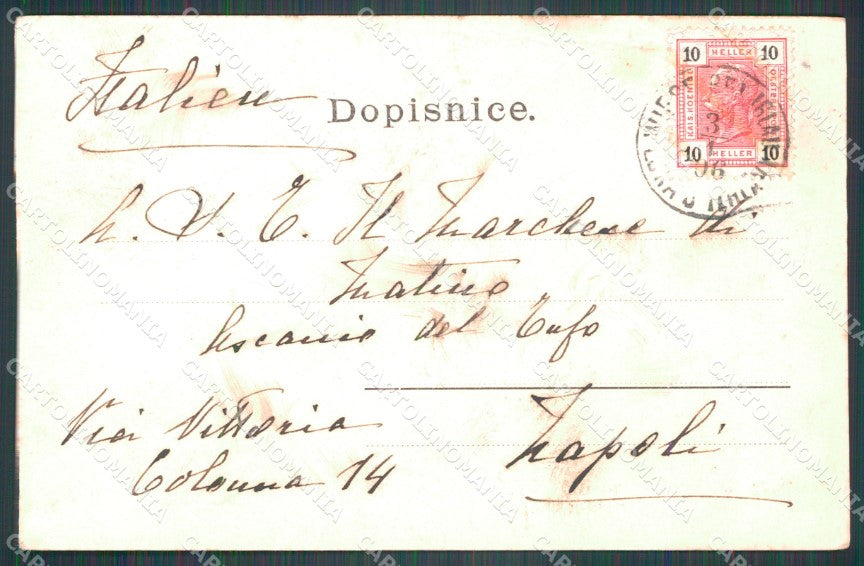 Italien
Dopisnice.
10 HELLER 10
10 HELLER 10
3
06
A. S. E. Il Marchese di
Matino
Ascanio del Tufo
Via Vittoria
Colonna 14
Napoli
CARTOLINOMANIA